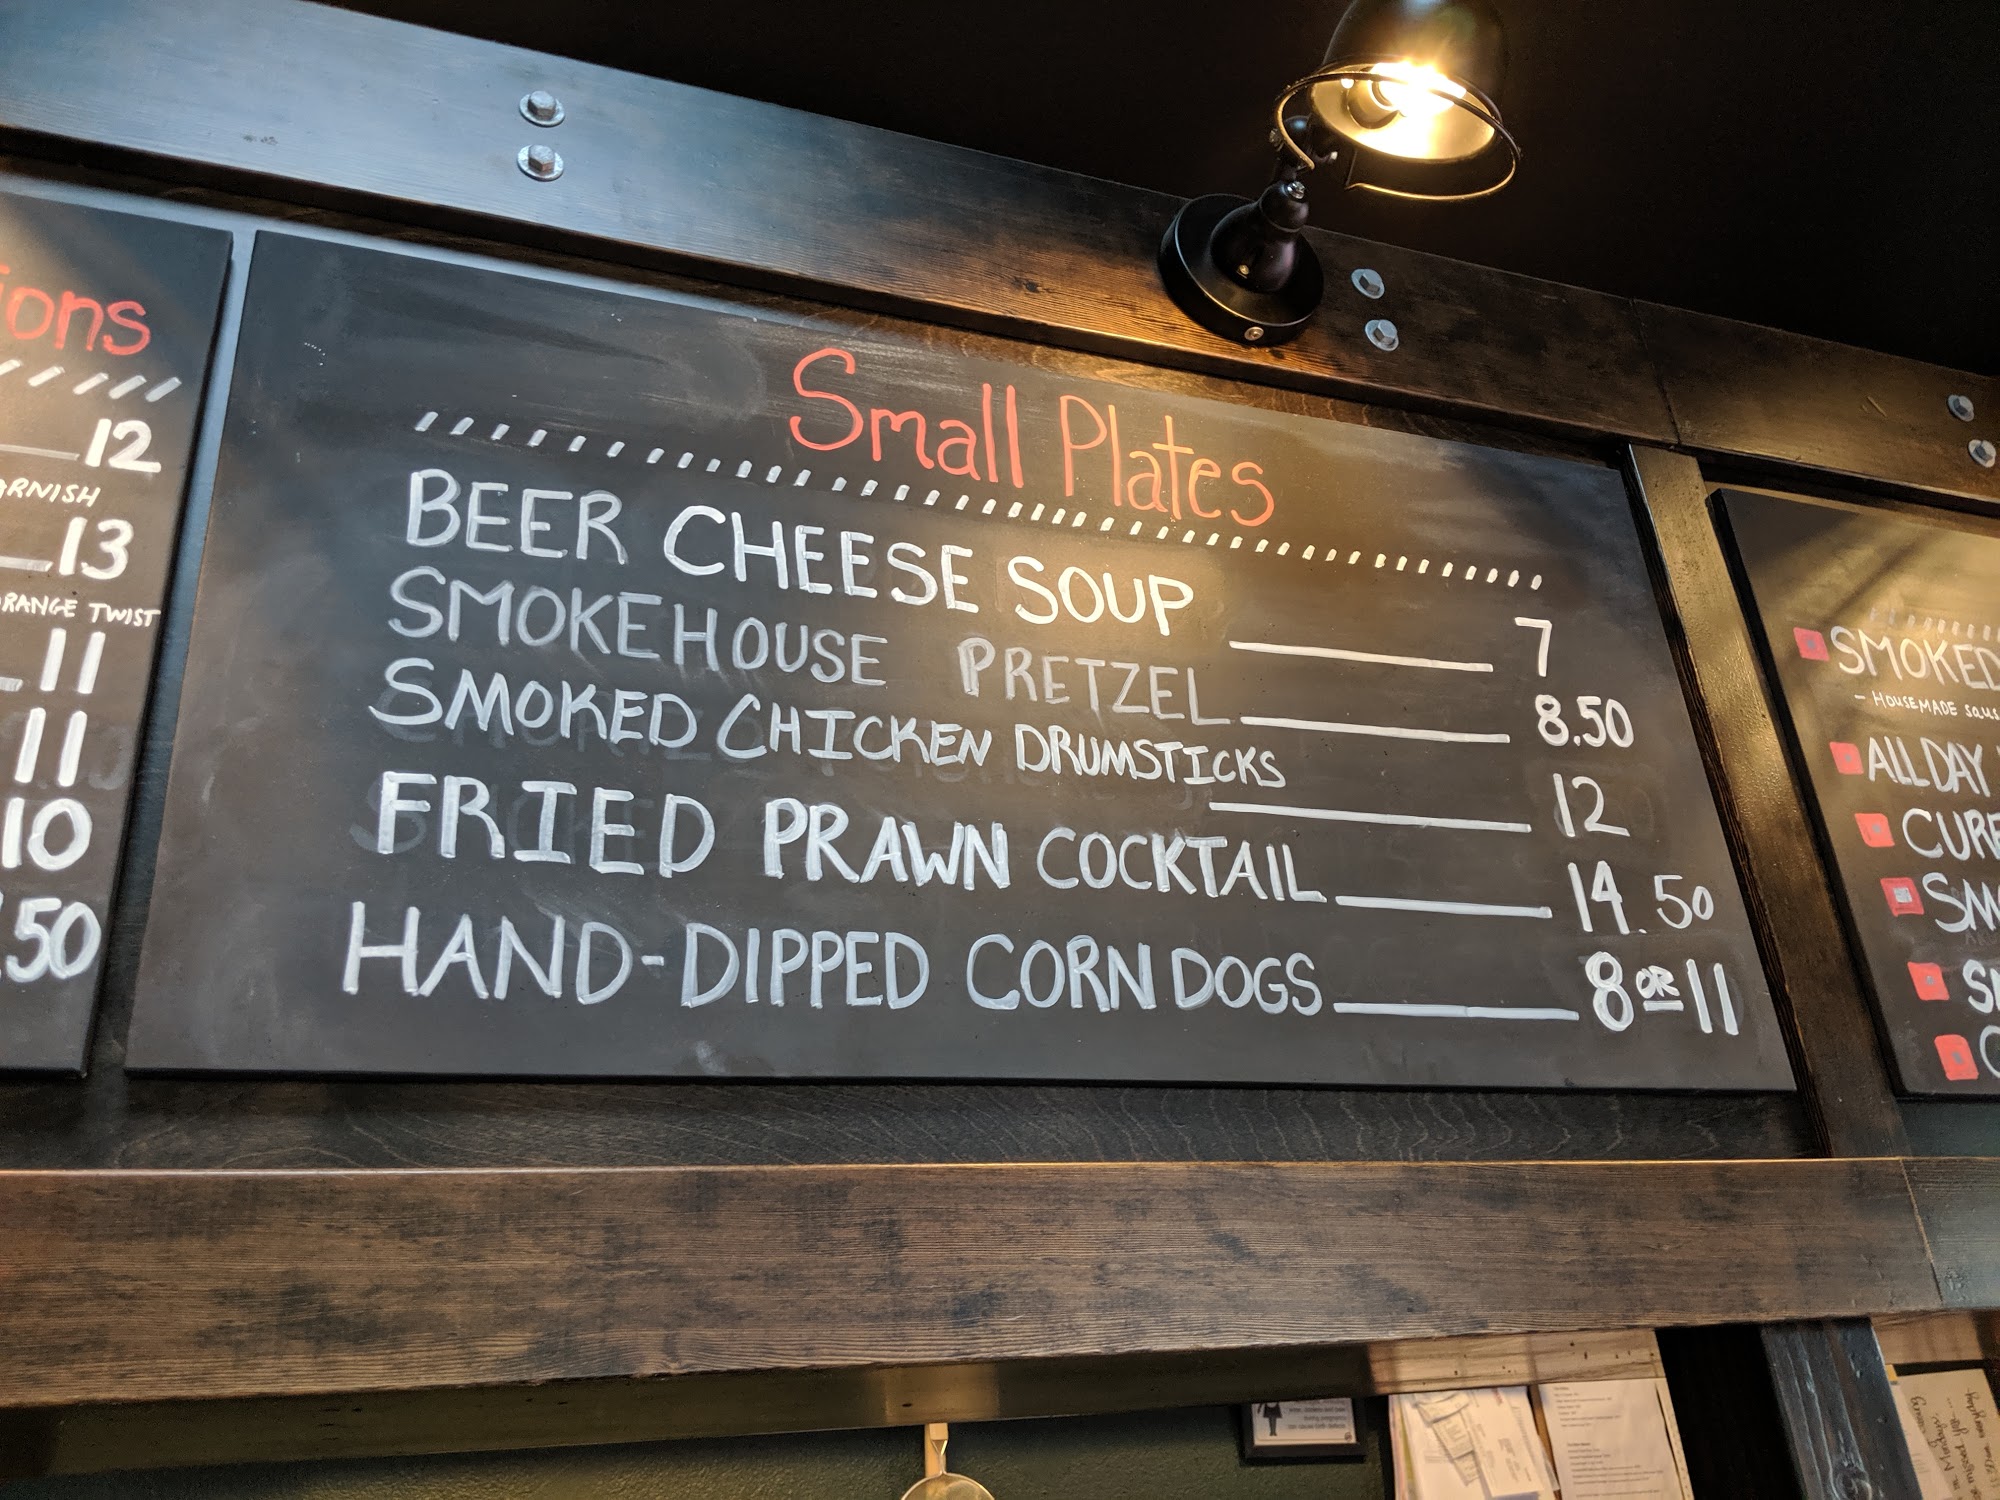 12
13
ORANGE TWIST
11
11
10
.50
Small Plates
BEER CHEESE SOUP 7
SMOKEHOUSE PRETZEL 8.50
SMOKED CHICKEN DRUMSTICKS 12
FRIED PRAWN COCKTAIL 14.50
HAND-DIPPED CORN DOGS 8 OR 11
SMOKED
- HOUSEMADE
ALL DAY